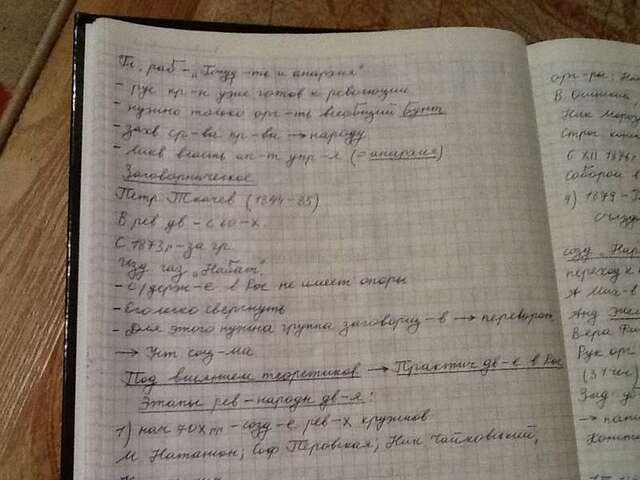 Гл. раб - „Госуд-ть и анархия"
- рус кр-н уже готов к революции
- нужно только орг-ть всеобщий бунт
- захв ср-ва пр-ва → народу
- ликв власть ап-т упр-я (= анархия)
Заговорническое
Петр Ткачев (1844-85)
В рев дв - с 60-х
С 1873г - за гр.
изд газ „Набат".
- С/держ-е в Рос не имеет опоры
- Его легко свергнуть
- Для этого нужна группа заговорщ-в → переворот
→ Уст соц-ма
Под влиянием теоретиков → Практич дв-е в Рос
Этапы рев-народн дв-я:
1) нач 70х гг - созд-е рев-х кружков
М. Натансон, Соф Перовская, Ник Чайковский,
орг-ры:
В. Осинский
Ник Мороз
С XII 1876г
4) 1879 -
съезд
созд „Нар
переход к
А Мих-в
Анд Жел
Вера Фи
Рук орг
(3 чел)
Зад